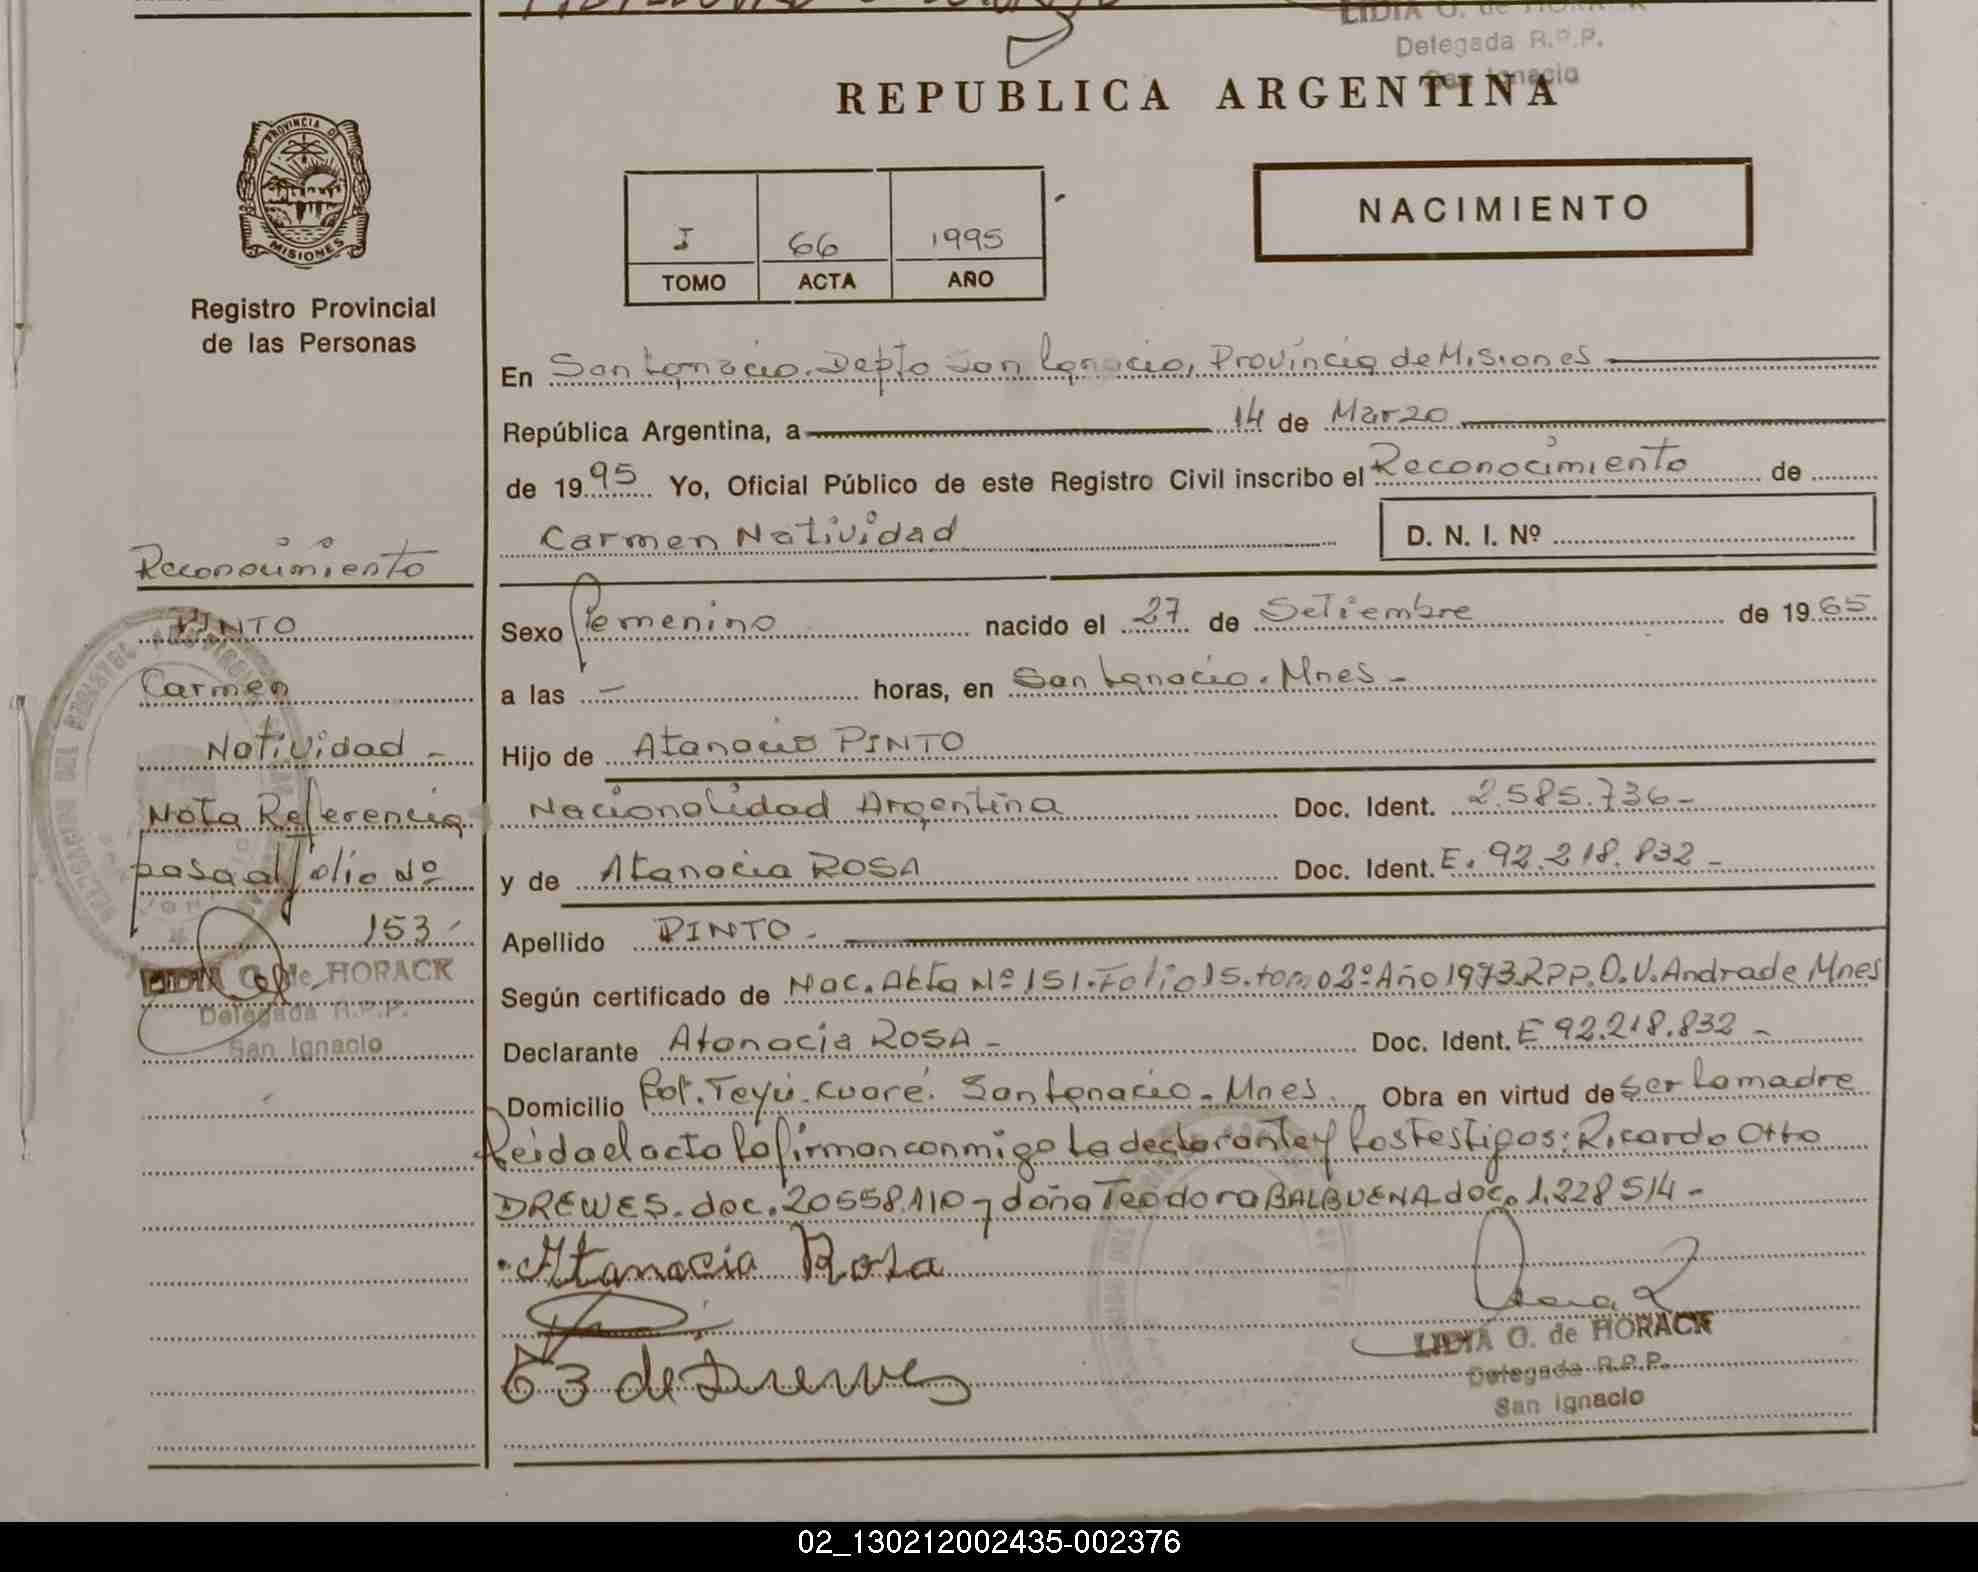 LIDIA O. de HORACK
Delegada R.P.P.
San Ignacio
REPUBLICA ARGENTINA
PROVINCIA DE
MISIONES
Registro Provincial
de las Personas
I 66 1995
TOMO ACTA AÑO
NACIMIENTO
En San Ignacio. Depto San Ignacio, Provincia de Misiones
República Argentina, a 14 de Marzo
de 1995 Yo, Oficial Público de este Registro Civil inscribo el Reconocimiento de
Carmen Natividad D. N. I. Nº
Sexo Femenino nacido el 27 de Setiembre de 1965
a las - horas, en San Ignacio. Mnes -
Hijo de Atanacio PINTO
Nacionalidad Argentina Doc. Ident. 2.585.736 -
y de Atanacia ROSA Doc. Ident. E. 92.218.832 -
Apellido PINTO -
Según certificado de Nac. Acta Nº 151. Folio 15. tomo 2º Año 1973 RPP. O.V. Andrade Mnes
Declarante Atanacia ROSA - Doc. Ident. E 92.218.832 -
Domicilio Pot. Teyú. Cuaré. San Ignacio - Mnes. Obra en virtud de ser la madre
Leida el acta la firman conmigo la declarante y los testigos: Ricardo Otto
DREWES. doc. 20558.110 y doña Teodora BALBUENA doc. 1.228514 -
Atanacia Rosa
de Drewes
LIDIA O. de HORACK
Delegada R.P.P.
San Ignacio
Reconocimiento
PINTO
Carmen
Natividad -
Nota Referencia
pasa al folio Nº
153
LIDIA O. de HORACK
Delegada R.P.P.
San Ignacio
02_130212002435-002376